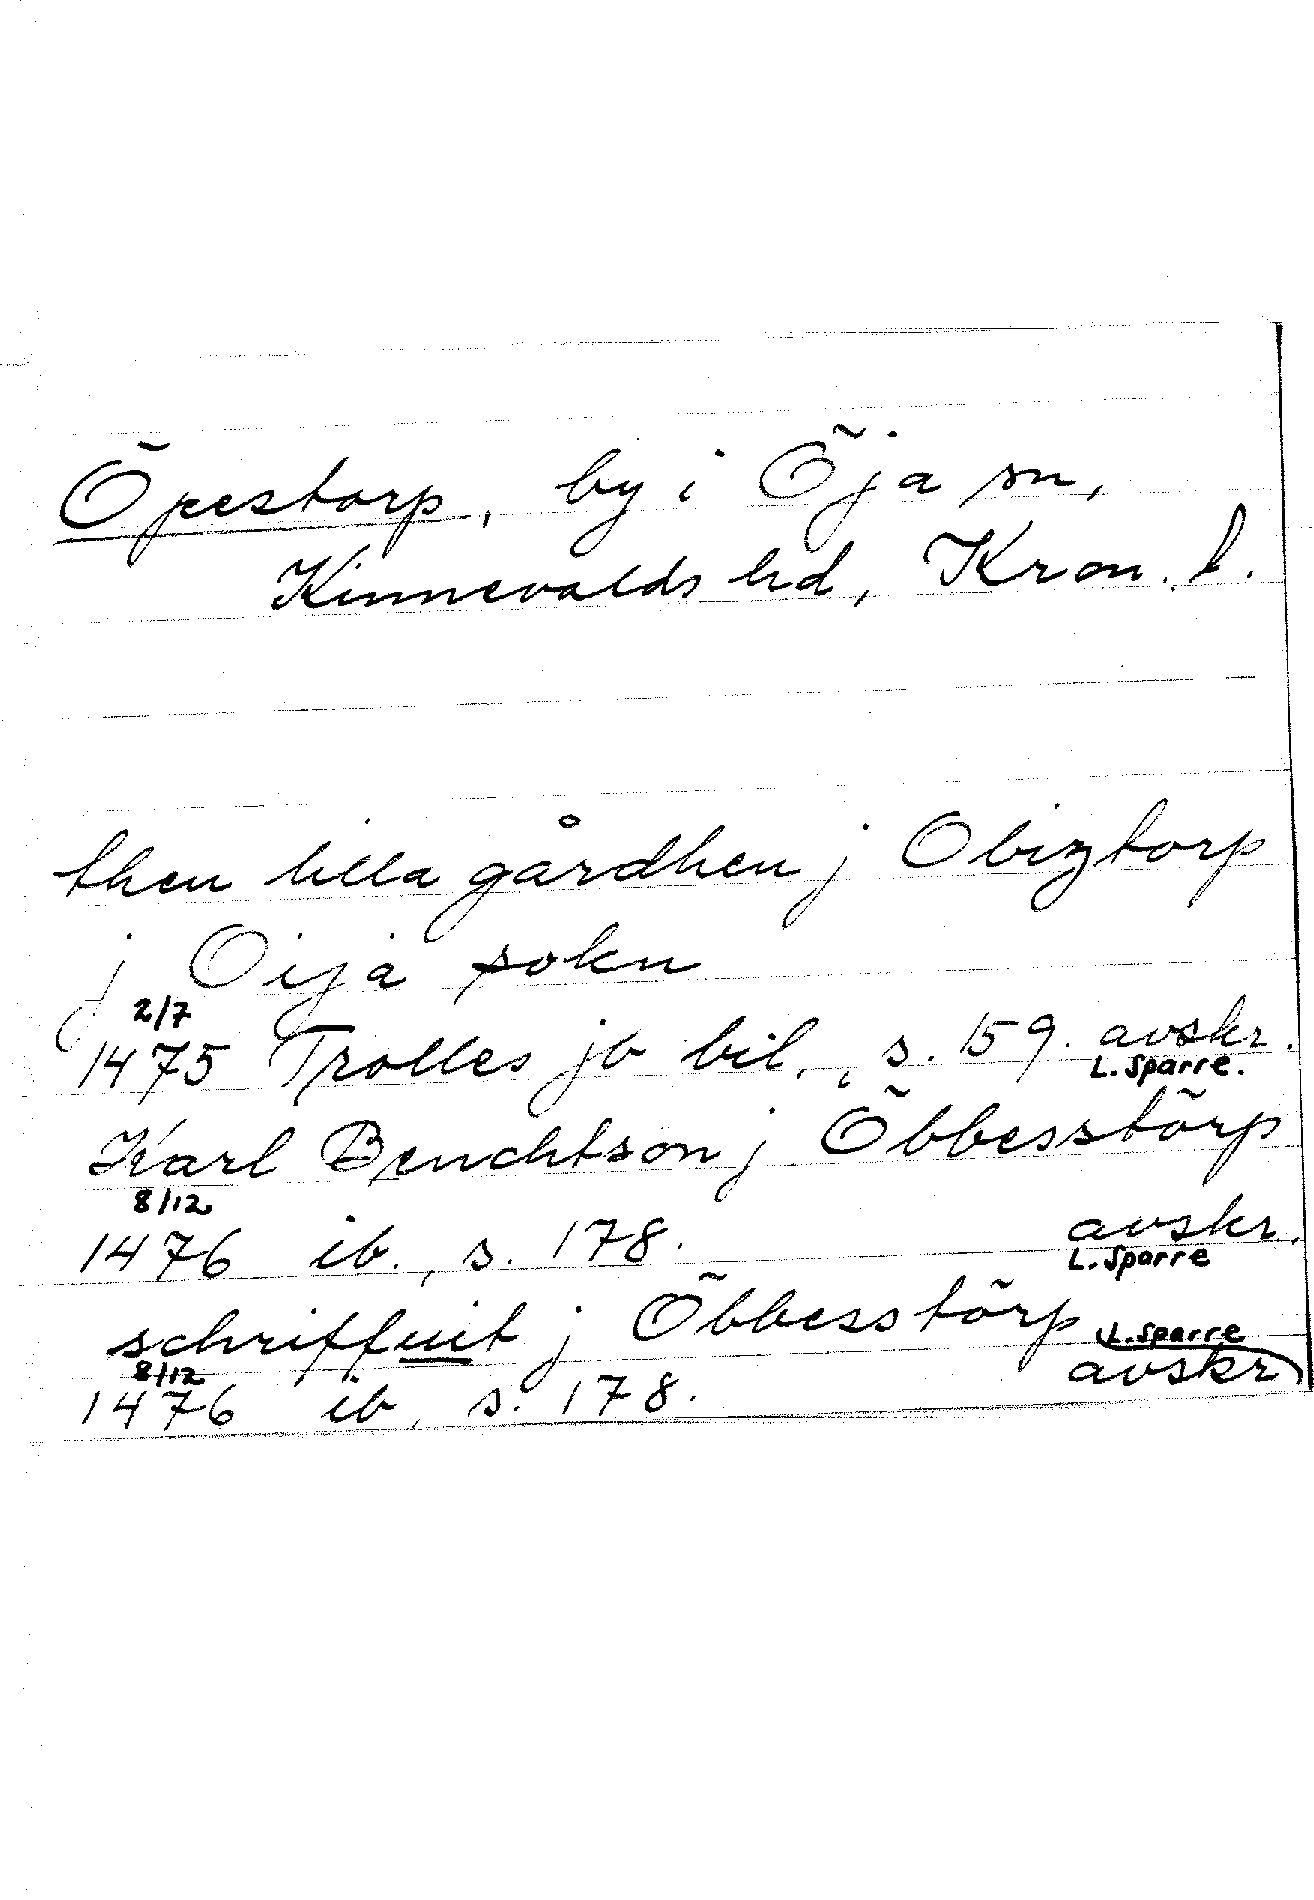 Öpestorp, by i Öja sn,
Kinnevalds hd, Kron. l.
then lilla gårdhen j Obiztorp
j Oija sokn
2/7
1475 Trolles jb bil., s. 159. avskr.
L. Sparre.
Karl Benchtson j Öbbesstörp
8/12
1476 ib., s. 178. avskr.
L. Sparre
schriffuit j Öbbesstörp L. Sparre
8/12
1476 ib, s. 178. avskr